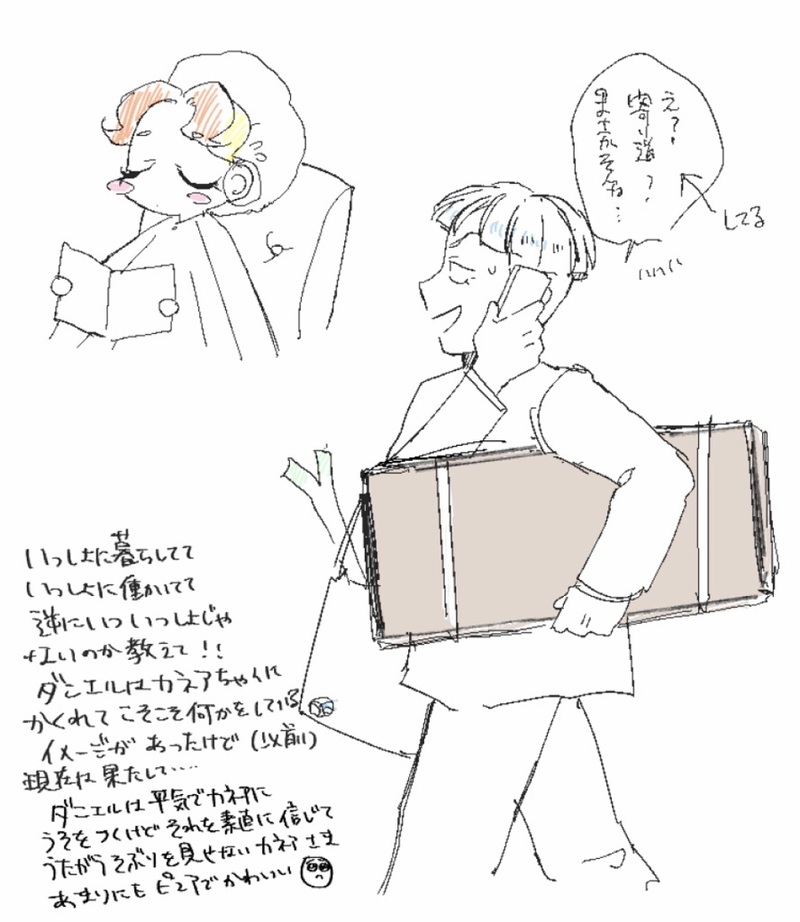 え?
寄り道?
まさかそんな…
してる
ハハハ
いっしょに暮らしてて
いっしょに働いてて
逆にいついっしょじゃ
ないのか教えて!!
ダニエルはカネアちゃんに
かくれてこそこそ何かをしている
イメージがあったけど(以前)
現在は果たして….
ダニエルは平気でカネアに
うそをつくけどそれを素直に信じて
うたがうそぶりを見せないカネアさま
あまりにもピュアでかわいい